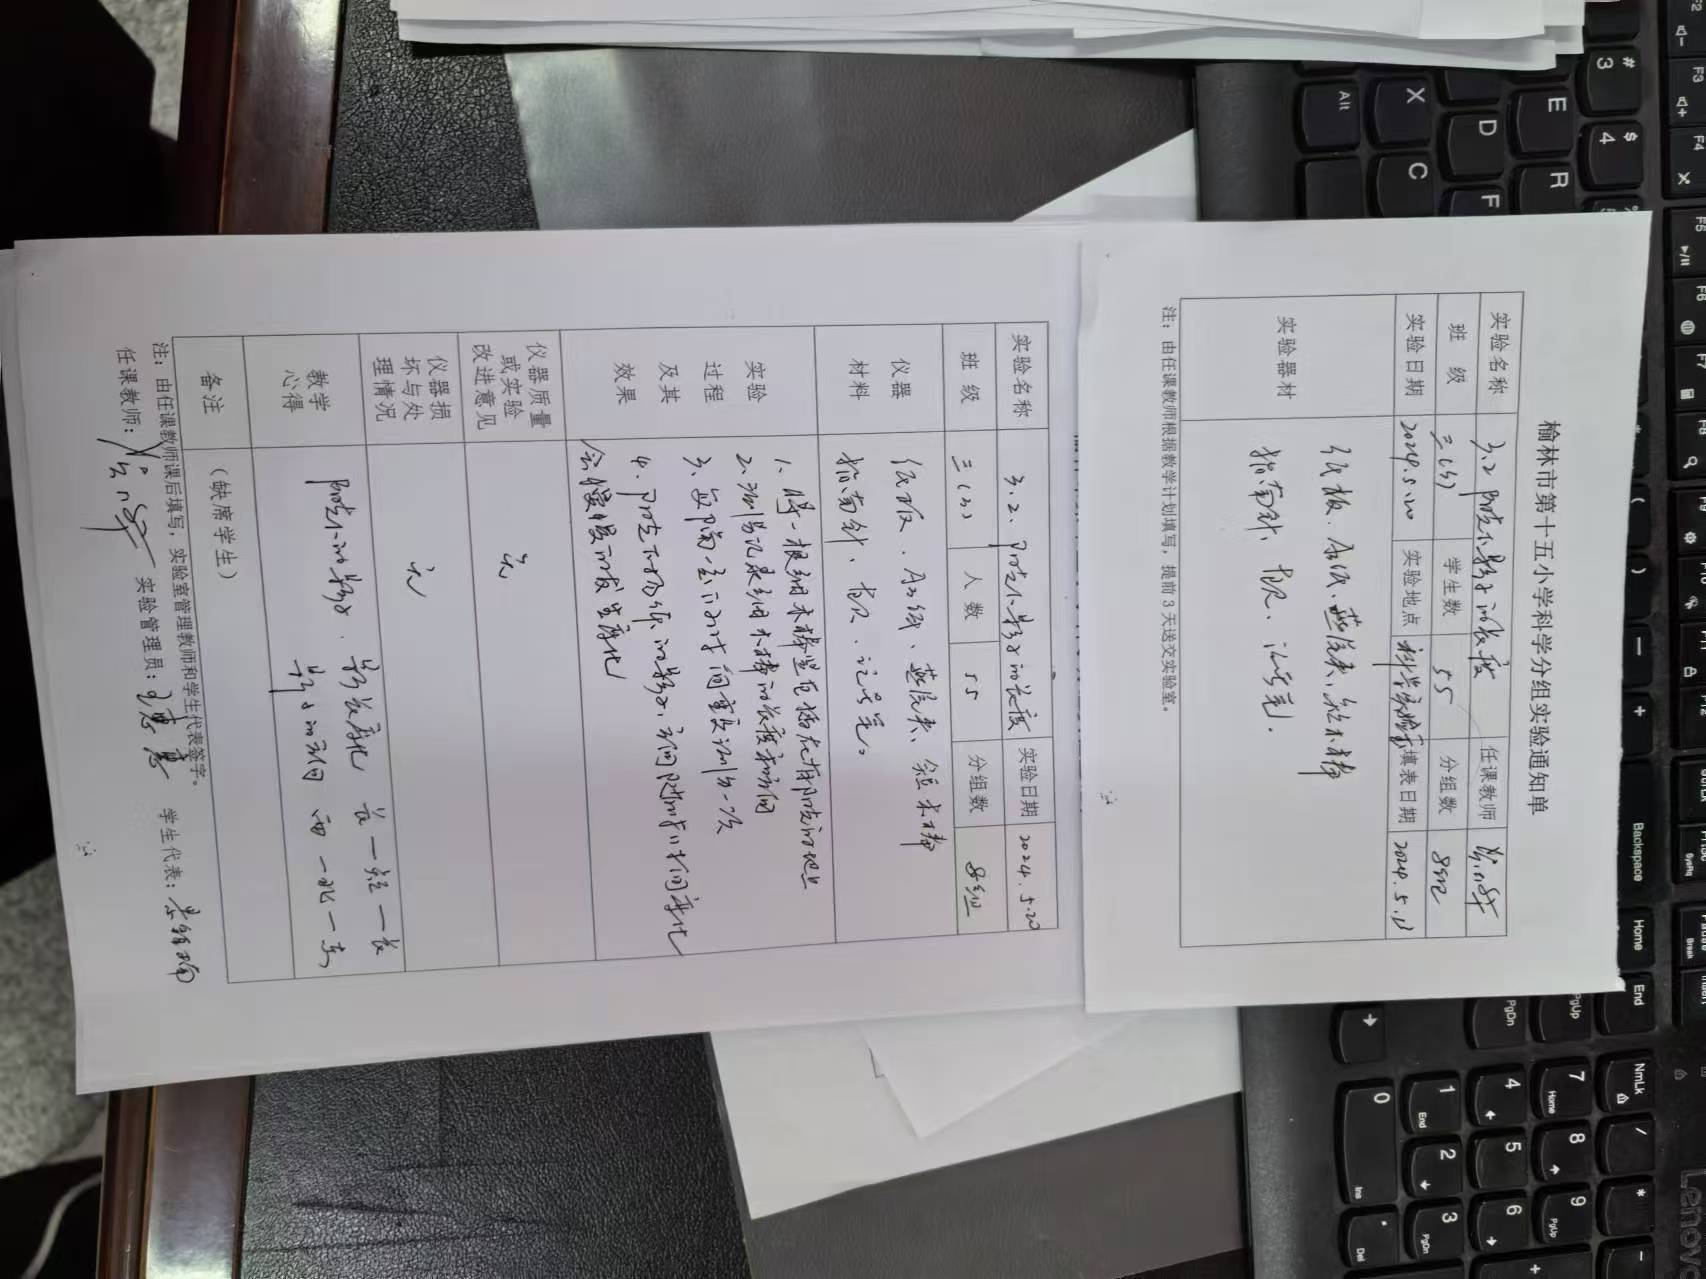 榆林市第十五小学科学分组实验通知单
实验名称 3.2阳光下影子的长度 任课教师
班 级 三(3) 学生数 55 分组数 8组
实验日期 2024.5.20 实验地点 科学实验室 填表日期 2024.5.
实验器材 纸板、白纸、蓝牙夹、短木棒
指南针、直尺、记号笔.
注:由任课教师根据教学计划填写,提前3天送交实验室。
实验名称 3.2.阳光下影子的长度 实验日期 2024.5.20
班 级 三(3) 人 数 55 分组数 8组
仪器
材料
纸板、白纸、 短木棒
指南针、直尺、记号笔。
实验
过程
及其
效果
1.将一根细木棒竖直插在有阳光的地上
2.测量记录细木棒的长度和方向
3.每隔一会 时间重复测量一次
4.阳光下物体的影子,方向随时时间变化
会慢慢的发生变化
仪器质量
或实验
改进意见
无
仪器损
坏与处
理情况
无
教学
心得
阳光下的影子.影长变化 长一短一长
影子的方向 西一北一东
备注 (缺席学生)
注:由任课教师课后填写,实验室管理教师和学生代表签字。
任课教师: 实验管理员: 学生代表:
F2
F3
F4
F5
F6
F7
F8
F9
#
3
$
4
E
R
D
F
X
C
Alt
Backspace
Home
End
PgUp
PgDn
NmLk
7
Home
8
9
PgUp
4
5
6
1
End
2
3
PgDn
0
Ins
Del
Lenovo